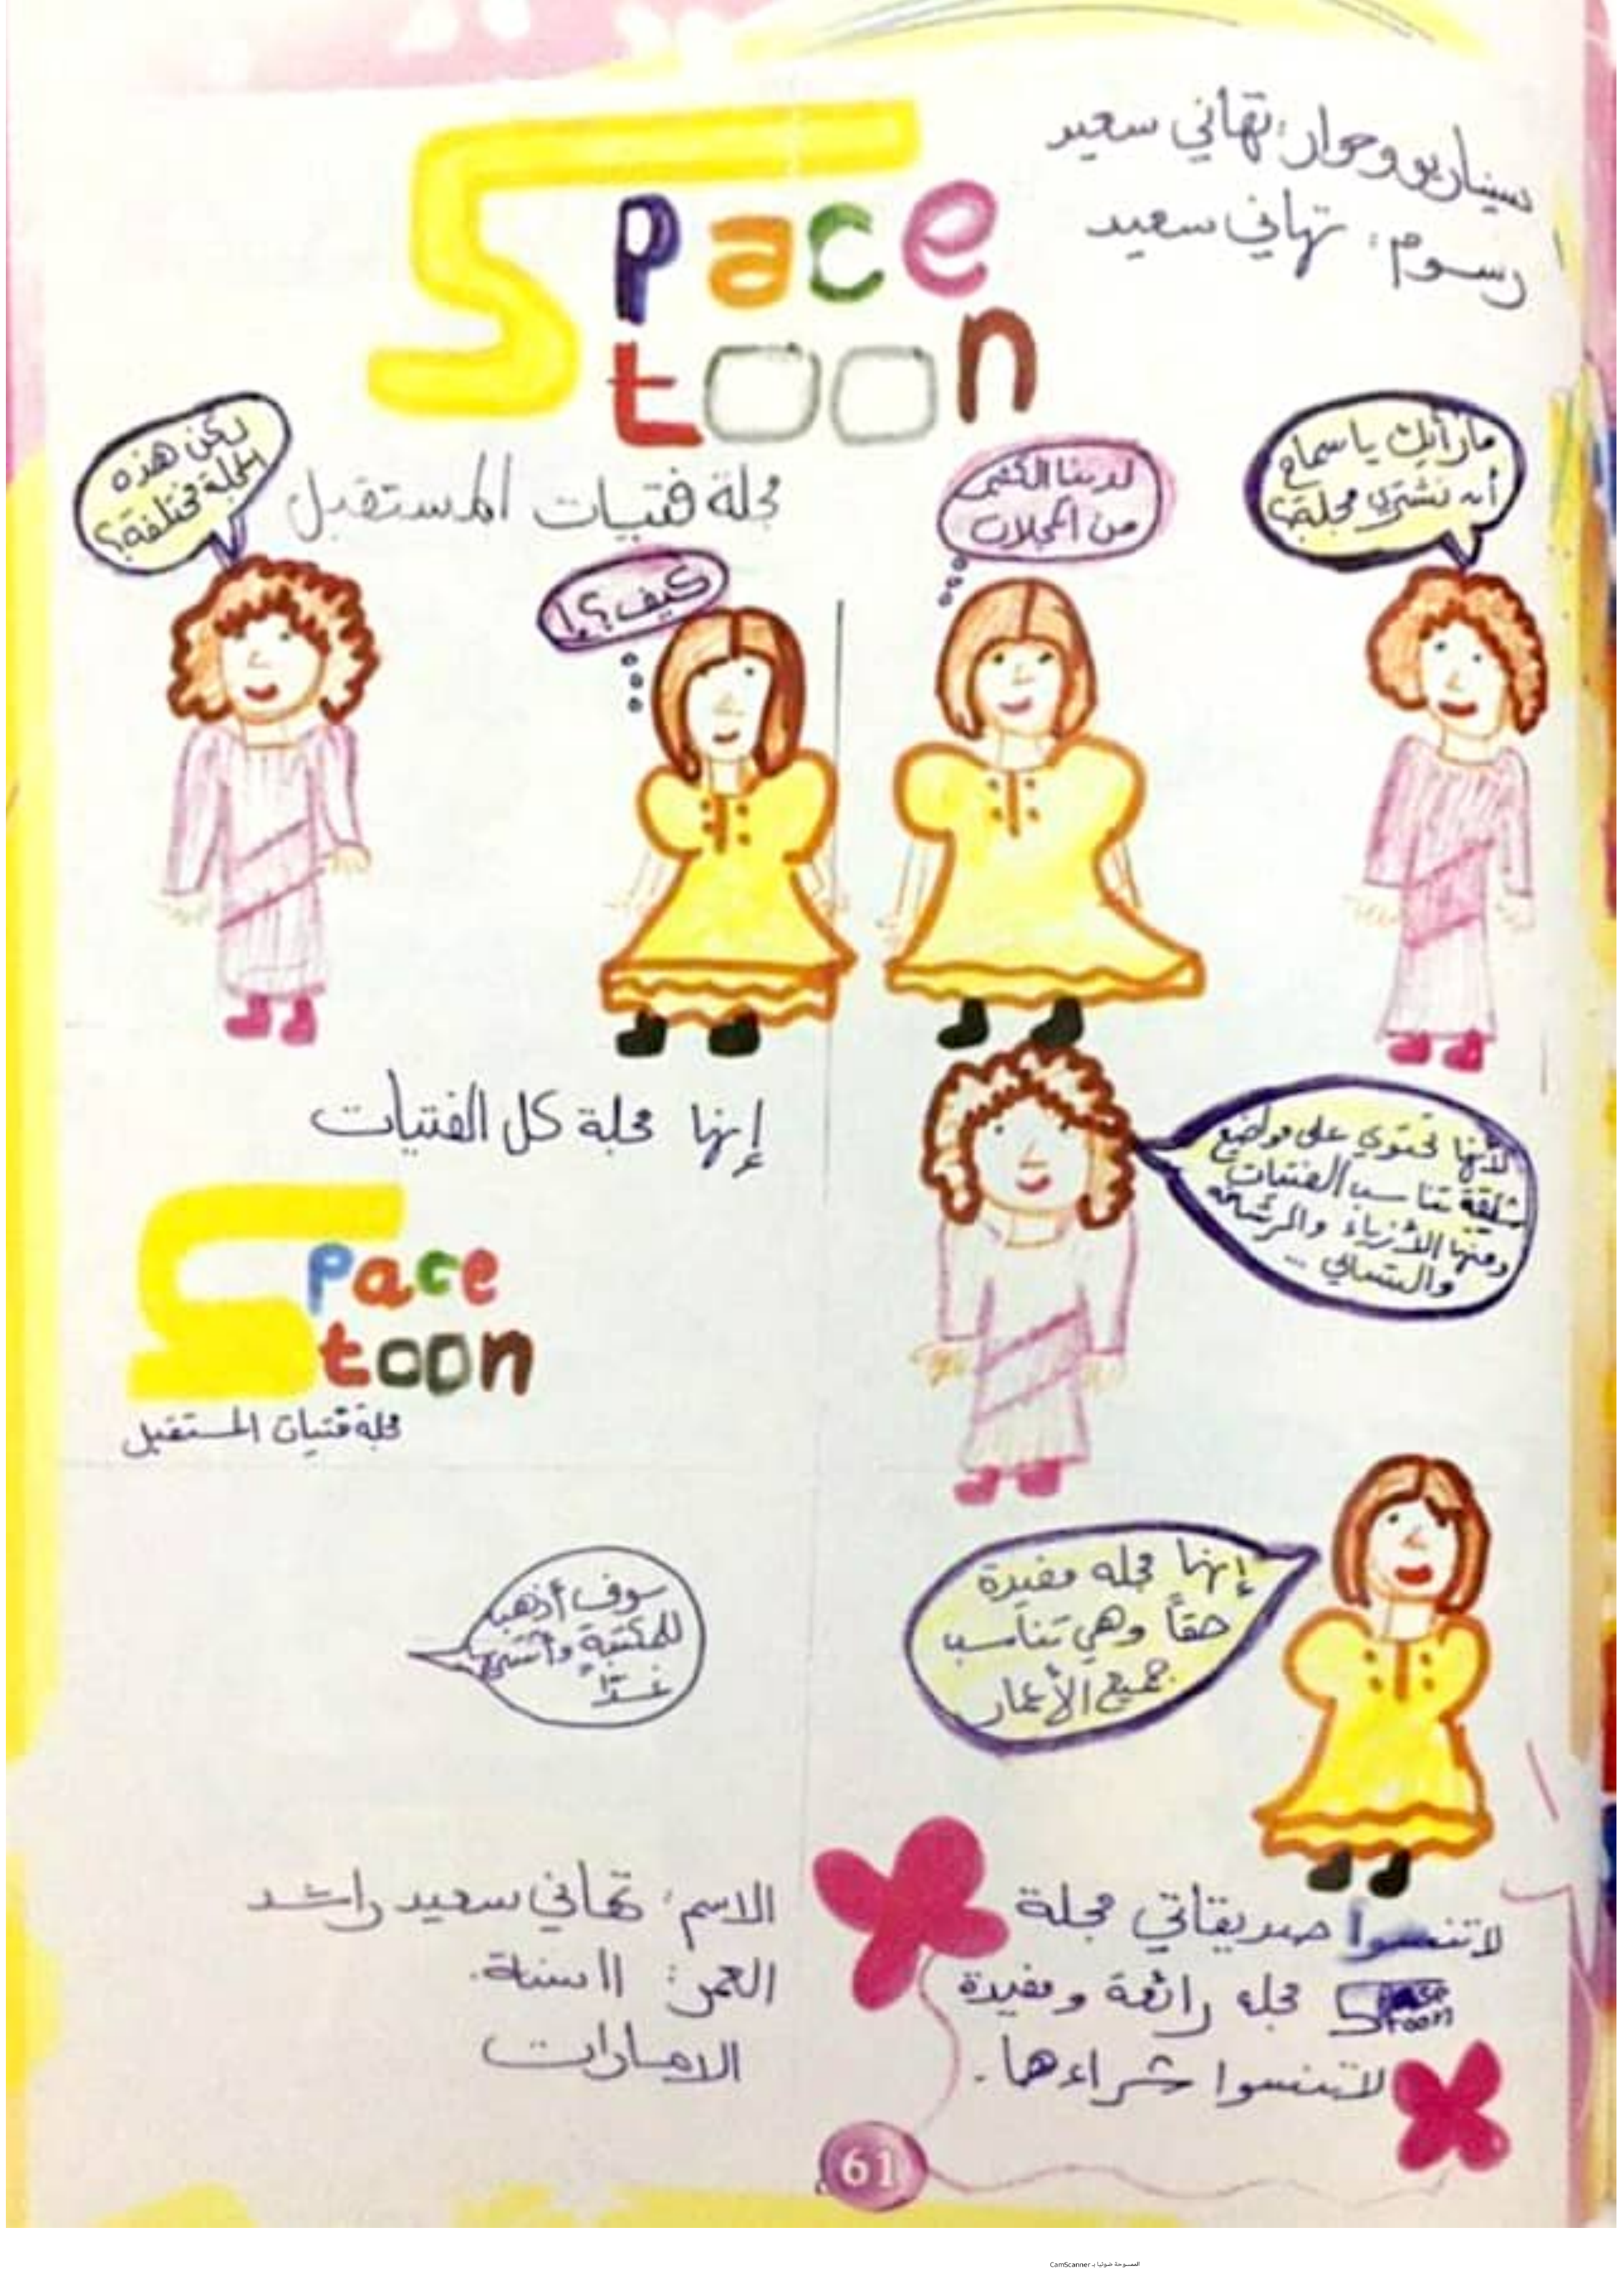 سيناريو وحوار: تهاني سعيد
رسوم: تهاني سعيد
Space
toon
مجلة فتيات المستقبل
ما رأيك يا سماح
أن نشتري مجلة؟
لدينا الكثير
من المجلات
كيف؟!
لكن هذه
المجلة مختلفة؟
لأنها تحتوي على مواضيع
شيقة تناسب الفتيات
ومنها الأزياء والرشاقة
والتسالي ..
إنها مجلة كل الفتيات
Space
toon
مجلة فتيات المستقبل
إنها مجله مفيدة
حقاً وهي تناسب
جميع الأعمار
سوف أذهب
للمكتبة وأشتري
غداً
لاتنسوا صديقاتي مجلة
Space
toon
مجله رائعة ومفيدة
لاتنسوا شراءها.
الاسم: تهاني سعيد راشد
العمر: 11 سنة.
الامارات
61
الممسوحة ضوئيا بـ CamScanner